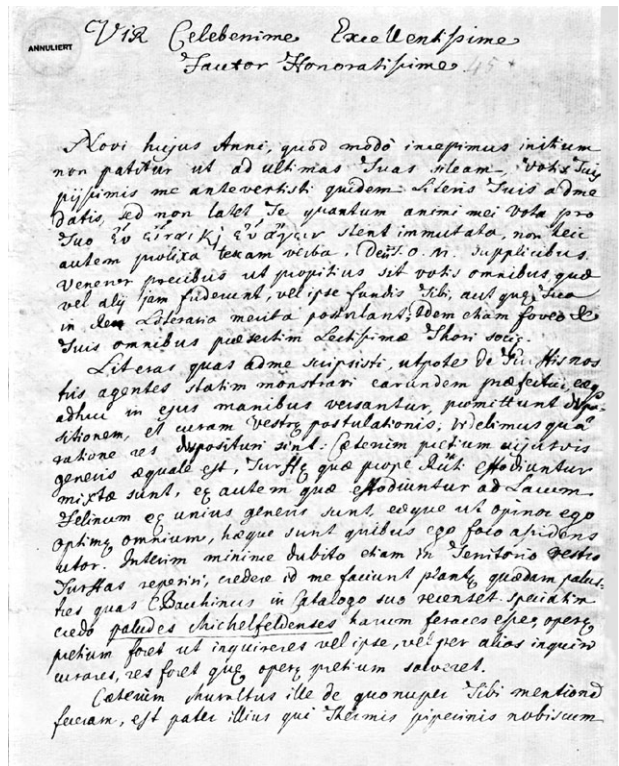 ANNULIERT
Vir Celeberrime Excellentissime
Fautor Honoratissime 45
Novi hujus Anni, quod modò incepimus initium
non patitur ut ad ultimas Tuas sileam, Votis Tuis
pijssimis me antevertisti quidem Literis Tuis ad me
datis, sed non latet, Te quantum animi mei vota pro
Tuo stent immutata, non heic
autem prolixa texam verba, O. M. supplicibus
Venerer precibus ut propitius sit votis omnibus, quæ
vel alij jam fuderunt, vel ipse fundis Tibi, aut quæ Tua
in Literaria merita postulant; Idem etiam foveo de
Tuis omnibus præsertim Lectissimæ Thori sociæ.
Literas quas ad me scripsisti, utpote de Turffis nos
tris agentes statim monstravi earundem præfectis, eæq
adhuc in ejus manibus versantur, promittunt dispo-
sitionem, et curam Vestræ postulationis, videbimus quâ
ratione res disposituri sint. Cæterum pretium cujusvis
generis æquale est, Turffæ quæ prope effodiuntur
mixtæ sunt, eæ autem quæ effodiuntur ad Lacum
Felinum eæ unius generis sunt, eæque ut opinor ego
optimæ omnium, hæque sunt quibus ego foco assidens
utor. Interim minime dubito etiam in Territorio vestro
Turffas reperiri, credere id me faciunt plantæ quædam palus-
tres quas C. Bauhinus in Catalogo suo recenset. Speciatim
credo paludes Michelfeldenses harum feraces esse, operæ
pretium foret ut inquireres vel ipse, vel per alios inquiri
curares, res foret quæ operæ pretium solveret.
Cæterum Muraltus ille de quo nuper Tibi mentionem
feceram, est pater illius qui Thermis piperinis nobiscum